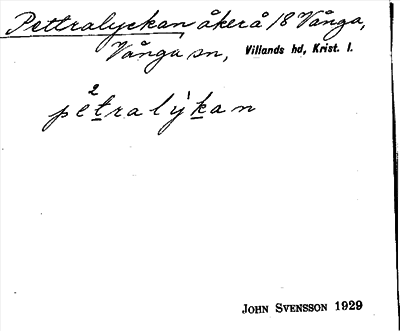 Pettralyckan åkerå 18 Vånga,
Vånga sn, Villands hd, Krist. l.
2
petralỳkan
JOHN SVENSSON 1929